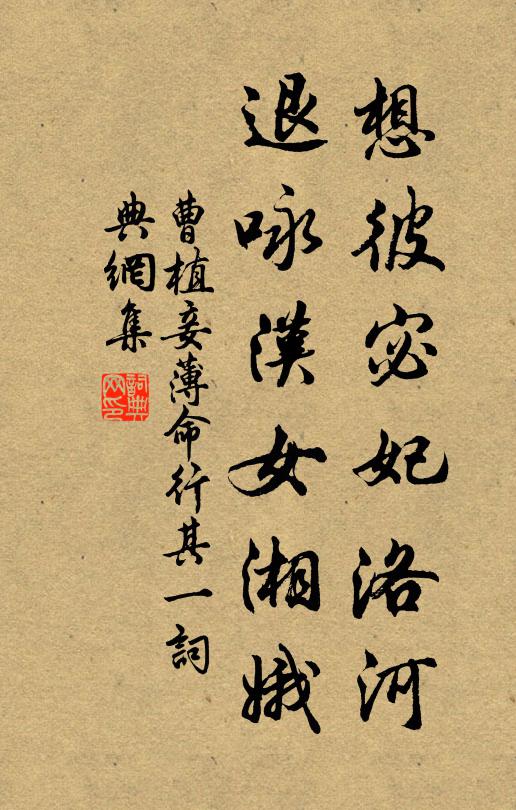 想彼宓妃洛河
退咏漢女湘娥
曹植妾薄命行其一詞
典網集
詞典
网印